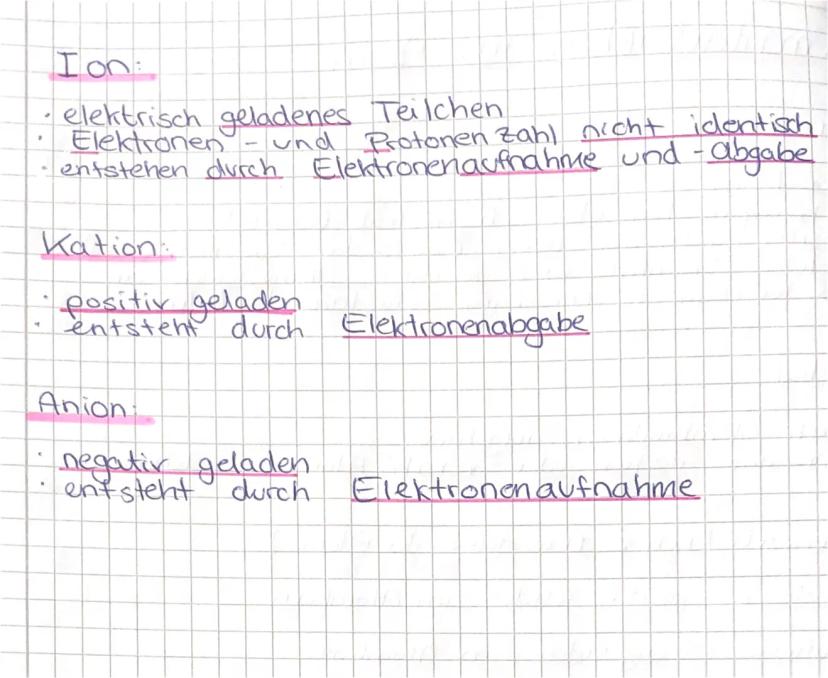 Ion:
· elektrisch geladenes Teilchen
· Elektronen - und Protonenzahl nicht identisch
· entstehen durch Elektronenaufnahme und -abgabe
Kation:
· positiv geladen
· entsteht durch Elektronenabgabe
Anion:
· negativ geladen
· entsteht durch Elektronenaufnahme